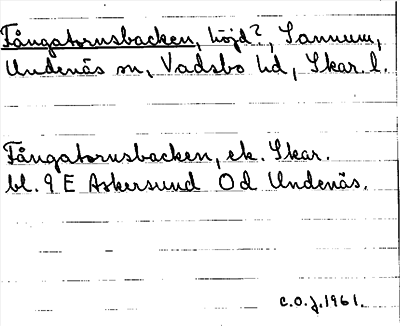 Fångatornsbacken, höjd?, Sannum,
Undenäs sn, Vadsbo hd, Skar. l.
Fångatornsbacken, ek. Skar.
bl. 9 E Askersund 0d Undenäs.
C.O.J. 1961.